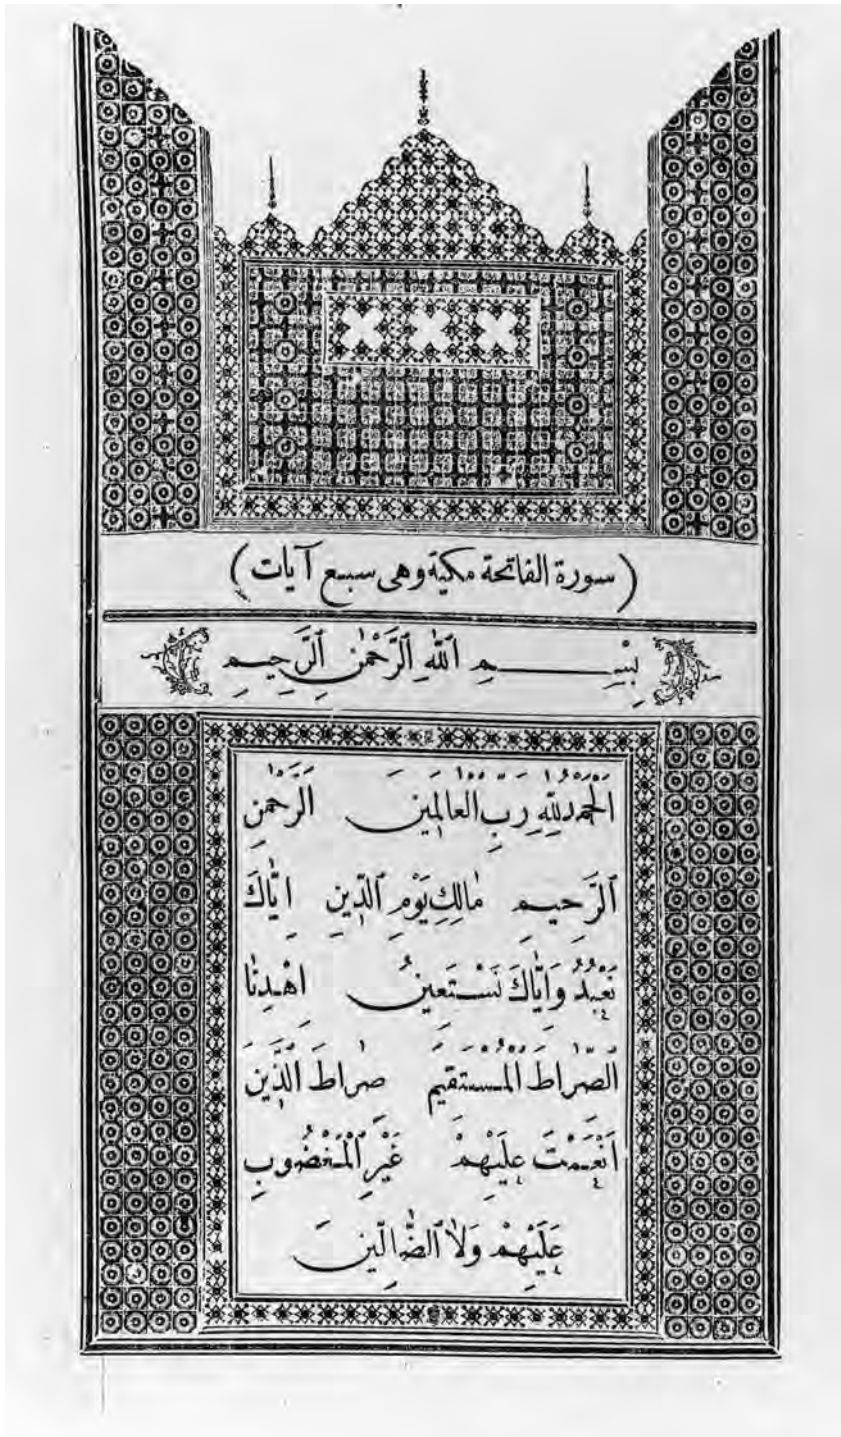 (سورة الفاتحة مكية وهى سبع آيات)
بِسْمِ ٱللّٰهِ ٱلرَّحْمٰنِ ٱلرَّحِيمِ
اَلْحَمْدُ لِلّٰهِ رَبِّ الْعَالَمِينَ اَلرَّحْمٰنِ
ٱلرَّحِيمِ مَالِكِ يَوْمِ ٱلدِّينِ اِيَّاكَ
نَعْبُدُ وَاِيَّاكَ نَسْتَعِينُ اِهْدِنَا
ٱلصِّرَاطَ الْمُسْتَقِيمَ صِرَاطَ الَّذِينَ
اَنْعَمْتَ عَلَيْهِمْ غَيْرِ الْمَغْضُوبِ
عَلَيْهِمْ وَلَا ٱلضَّالِّينَ